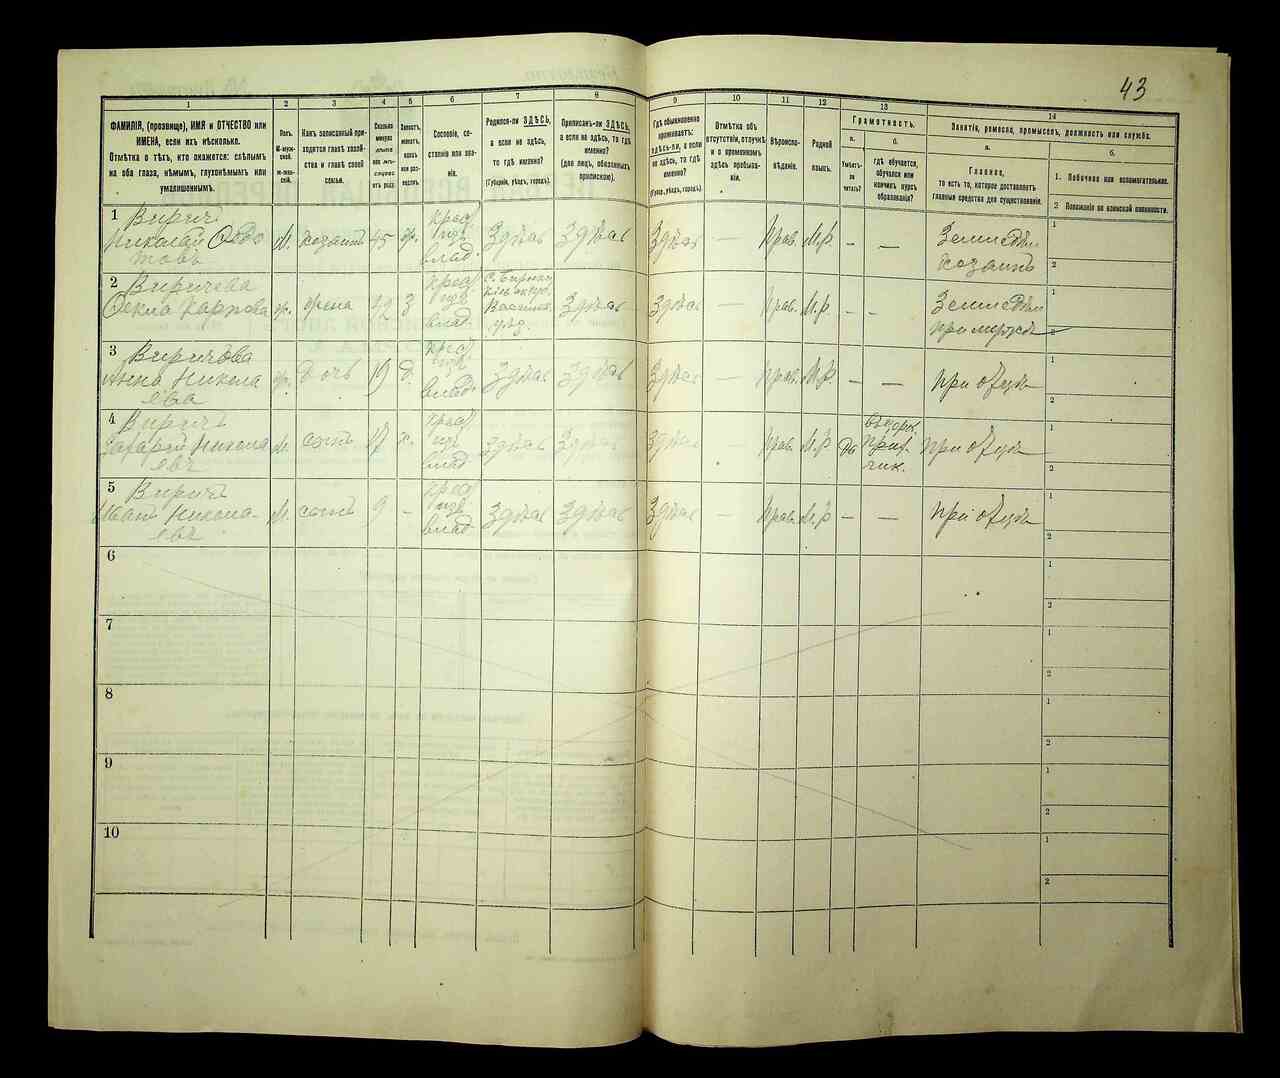 43
1
2
3
4
5
6
7
8
9
10
11
12
13
14
ФАМИЛІЯ, (прозвище), ИМЯ и ОТЧЕСТВО или
ИМЕНА, если ихъ нѣсколько.
Отмѣтка о тѣхъ, кто окажется: слѣпымъ
на оба глаза, нѣмымъ, глухонѣмымъ или
умалишоннымъ.
Полъ.
М-муж-
ской.
Ж-жен-
скій.
Какъ записанный при-
ходится главѣ хозяй-
ства и главѣ своей
семьи.
Сколько
минуло
лѣтъ
отъ роду.
Холостъ,
женатъ,
вдовъ
или раз-
веденъ.
Сословіе, со-
стояніе или зва-
ніе.
Родился-ли ЗДѢСЬ,
а если не здѣсь,
то гдѣ именно?
(Губернія, уѣздъ, городъ).
Приписанъ-ли ЗДѢСЬ,
а если не здѣсь, то гдѣ
именно?
(для лицъ, обязанныхъ
припискою).
Гдѣ обыкновенно
проживаетъ:
здѣсь-ли, а если
не здѣсь, то гдѣ
именно?
(Губер., уѣздъ, городъ).
Отмѣтка объ
отсутствіи, отлучкѣ
и о временномъ
здѣсь пребыва-
ніи.
Вѣроиспо-
вѣданіе.
Родной
языкъ.
Грамотность.
а.
Умѣетъ-
ли
читать?
б.
гдѣ обучается,
обучался или
кончилъ курсъ
образованія?
Занятіе, ремесло, промыселъ, должность или служба.
а.
Главное,
то есть то, которое доставляетъ
главныя средства для существованія.
б.
1. Побочное или вспомогательное.
2 Положеніе по воинской повинности.
1 Виричъ
Николай
М. хозяинъ 45 ж.
крес.
влад.
Здѣсь Здѣсь Здѣсь — Прав. М.р. — —
хозяинъ
1
2
2 Виричева
Ѳекла Карпова
ж. жена 42 з
влад.
Здѣсь Здѣсь — Прав. М.р. — —
при мужѣ
2
3 Виричова
Анна Никола
ева
ж. дочь 19 д.
влад.
Здѣсь Здѣсь Здѣсь — Прав. М.р. — — при отцѣ
1
2
4 Виричъ
Захарій Никола
евъ
М. сынъ 17 х.
влад.
Здѣсь Здѣсь Здѣсь — Прав. М.р. да
при отцѣ
1
2
5 Виричъ
Иванъ Никола-
евъ
М. сынъ 9 —
влад.
Здѣсь Здѣсь Здѣсь — Прав. М.р. — — при отцѣ
1
2
6
1
2
7
1
2
8
1
2
9
1
2
10
1
2